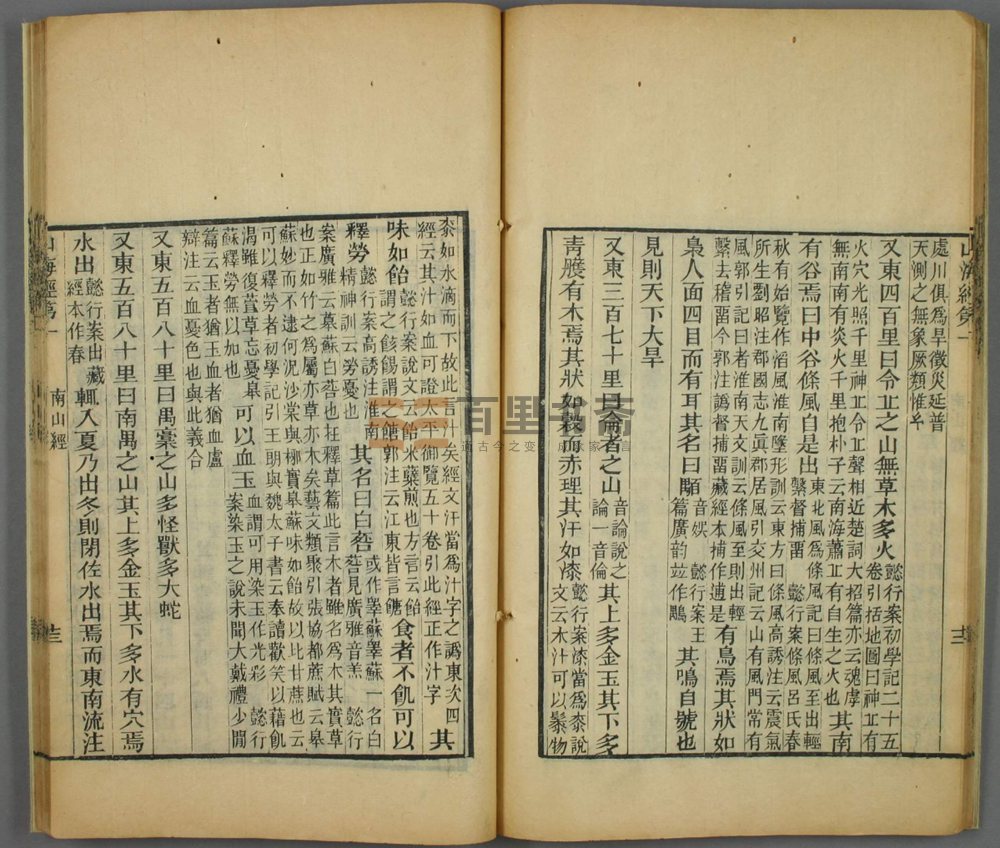 處川俱為旱徵災延普
天測之無象厥類惟
又東四百里曰令丘之山無草木多火
懿行案初學記二十五
卷引括地圖曰神丘有
火穴光照千里神丘令丘聲相近楚詞大招篇亦云魂虖
無南南有炎火千里抱朴子云南海蕭丘有自生之火也
其南
有谷焉曰中谷條風自是出
東北風為條風記曰條風至出輕
繫督捕畱　懿行案條風呂氏春
秋有始覽作滔風淮南墬形訓云東方曰條風高誘注云震氣
所生劉昭注郡國志九真郡居風引交州記云山有風門常有
風郭引記曰者淮南天文訓云條風至則出輕
繫去稽畱今郭注譌督捕畱藏經本捕作逋是
有鳥焉其狀如
梟人面四目而有耳其名曰顒
音娛　懿行案玉
篇廣韵竝作鷠
其鳴自號也
見則天下大旱
又東三百七十里曰侖者之山
音論說之
論一音倫
其上多金玉其下多
青雘有木焉其狀如穀而赤理其汗如漆
懿行案漆當為桼說
文云木汁可以䰍物
桼如水滴而下故此言汁矣經文汗當為汁字之譌東次四
經云其汁如血可證太平御覽五十卷引此經正作汁字
其
味如飴
懿行案說文云飴米糱煎也方言云飴
謂之餩餳謂之餹郭注云江東皆言餹
食者不飢可以
釋勞
懿行案高誘注淮南
精神訓云勞憂也
其名曰白䓘
或作睪蘇睪蘇一名白
䓘見廣雅音羔　懿行
案廣雅云䓘蘇白䓘也在釋草篇此言木者雖名為木其實草
也正如竹之為屬亦草亦木矣藝文類聚引張協都蔗賦云皋
蘇妙而不逮何況沙棠與椰實皋蘇味如飴故以比甘蔗也云
可以釋勞者初學記引王朗與魏太子書云奉讀歡笑以藉飢
渴雖復萱草忘憂皋
蘇釋勞無以加也
可以血玉
血謂可用染玉作光彩　懿行
案染玉之說未聞大戴禮少閒
篇云玉者猶玉血者猶血盧
辯注云血憂色也與此義合
又東五百八十里曰禺稾之山多怪獸多大蛇
又東五百八十里曰南禺之山其上多金玉其下多水有穴焉
水出
懿行案出藏
經本作春
輒入夏乃出冬則閉佐水出焉而東南流注
山海經第一
南山經
十三
百里书斋